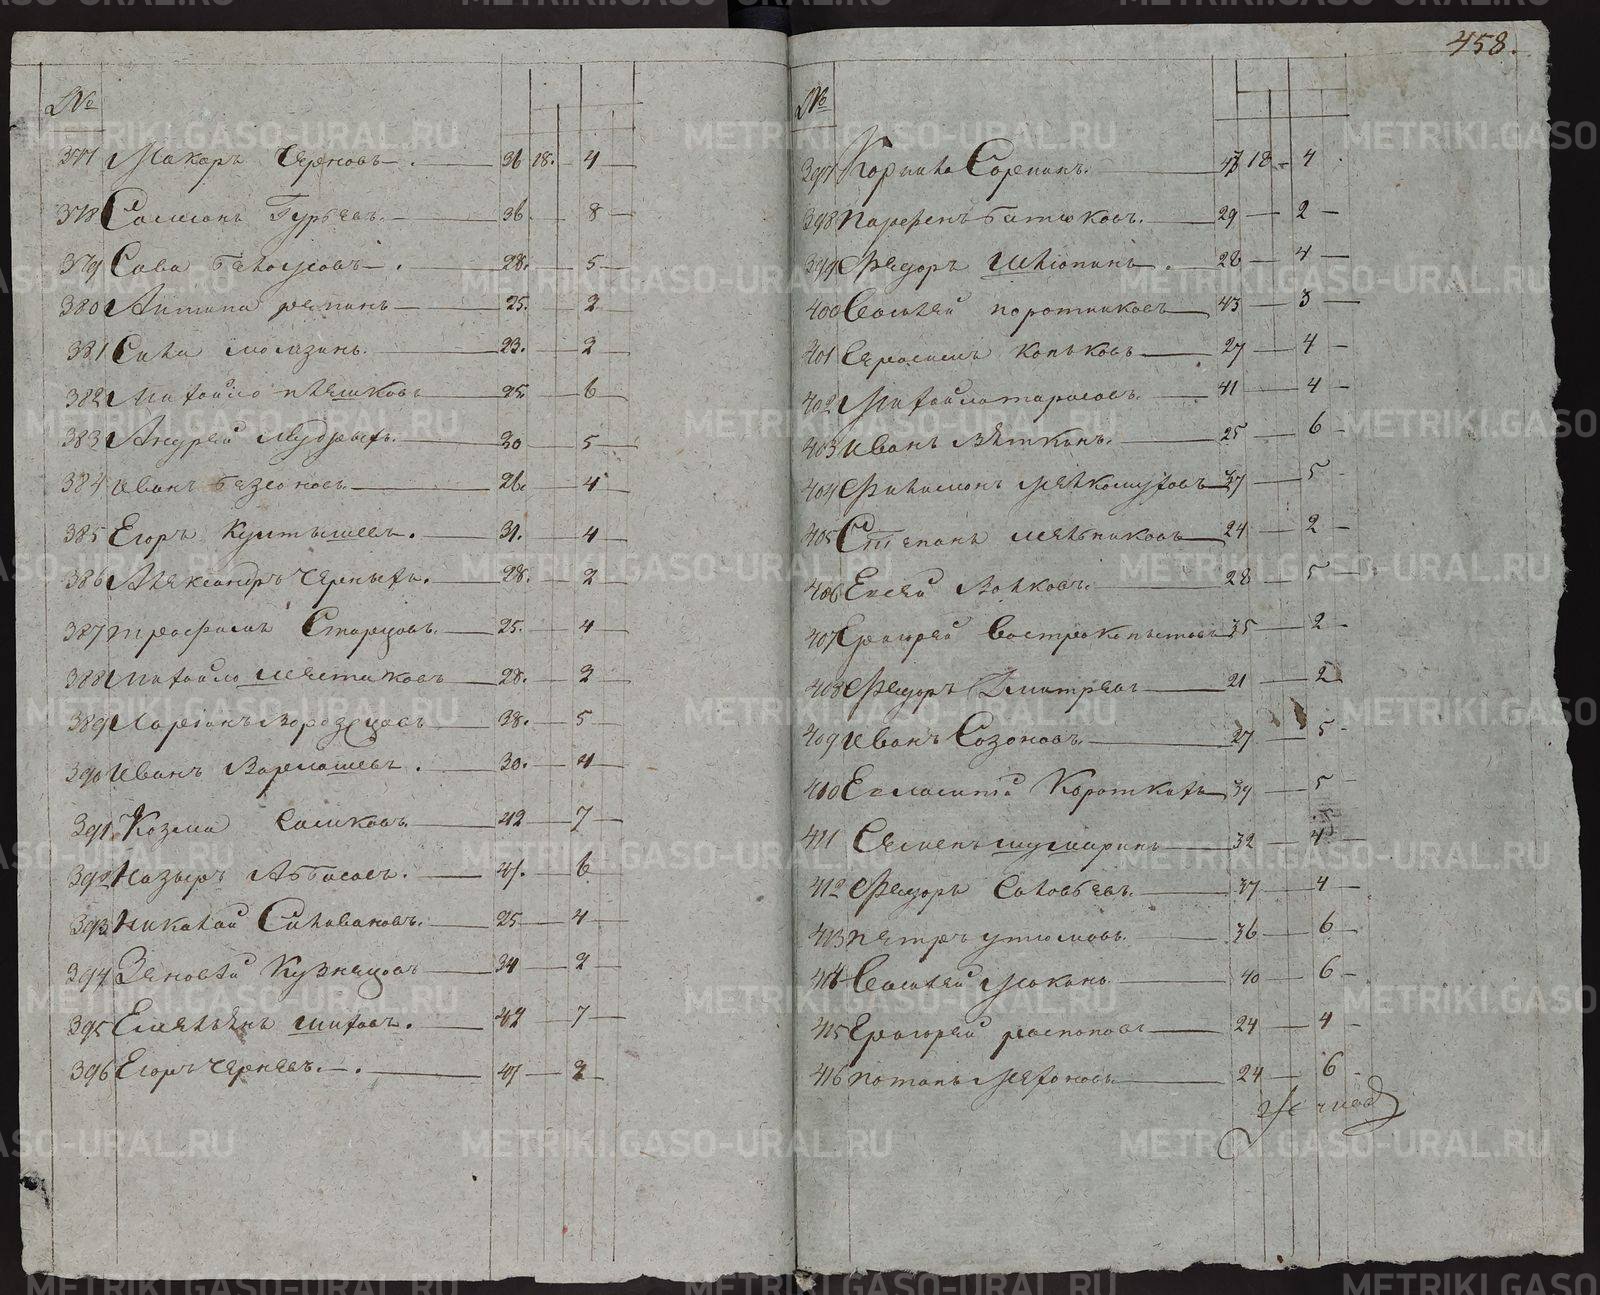 458.
№
377 Макаръ Черновъ. 36 18. 4
378 Самсонъ Гурьевъ. 36 8
379 Сава Бѣлоусовъ. 28. 5
380 Антипа репинъ 25. 2
381 Сила мамзинъ. 23. 2
382 Михайло плешковъ 25. 6
383 Андрей Мудрыхъ. 30 5
384 Иванъ Безсоновъ. 26. 4
385 Егоръ Куптышевъ. 31. 4
386 Александръ Черныхъ. 28. 2
387 трофимъ Старцовъ. 25. 4
388 Михайло шестаковъ 28. 2
389 Ларіонъ Ворозцовъ 38. 5
390 Иванъ Вармашевъ. 30. 4
391 Козма Самковъ 42 7
392 Назыръ Абтасовъ. 41. 6
393 Николай Силивановъ. 25 4
394 Зеновей Кузнецовъ 34 2
395 Емельянъ шиховъ. 42 7
396 Егоръ Черневъ. 47 2
№
397 Корнило Сорпинъ. 47 18 4
398 Парфенъ батюковъ. 29 2
399 Федоръ Шлюпинъ. 28 4
400 Василей поротниковъ 43 3
401 Герасимъ Копьковъ 27 4
402 Михайло тарасовъ. 41 4
403 Иванъ Вяткинъ. 25 6
404 Филимонъ Мелкомуховъ 37 5
405 Степанъ мельниковъ 24 2
406 Евсей Волковъ. 28 5
407 Григорей Вострокопытовъ 35 2
408 Федоръ Дмитревъ 21 2
409 Иванъ Созоновъ. 27 5
410 Евламптй Короткихъ 39 5
411 Семенъ шумаринъ 32 4
412 Федоръ Саловьевъ. 37 4
413 петръ утюмовъ. 36 6
414 Василей Мокинъ 40 6
415 Григорей распоповъ 24 4
416 потапъ Мехоновъ 24 6